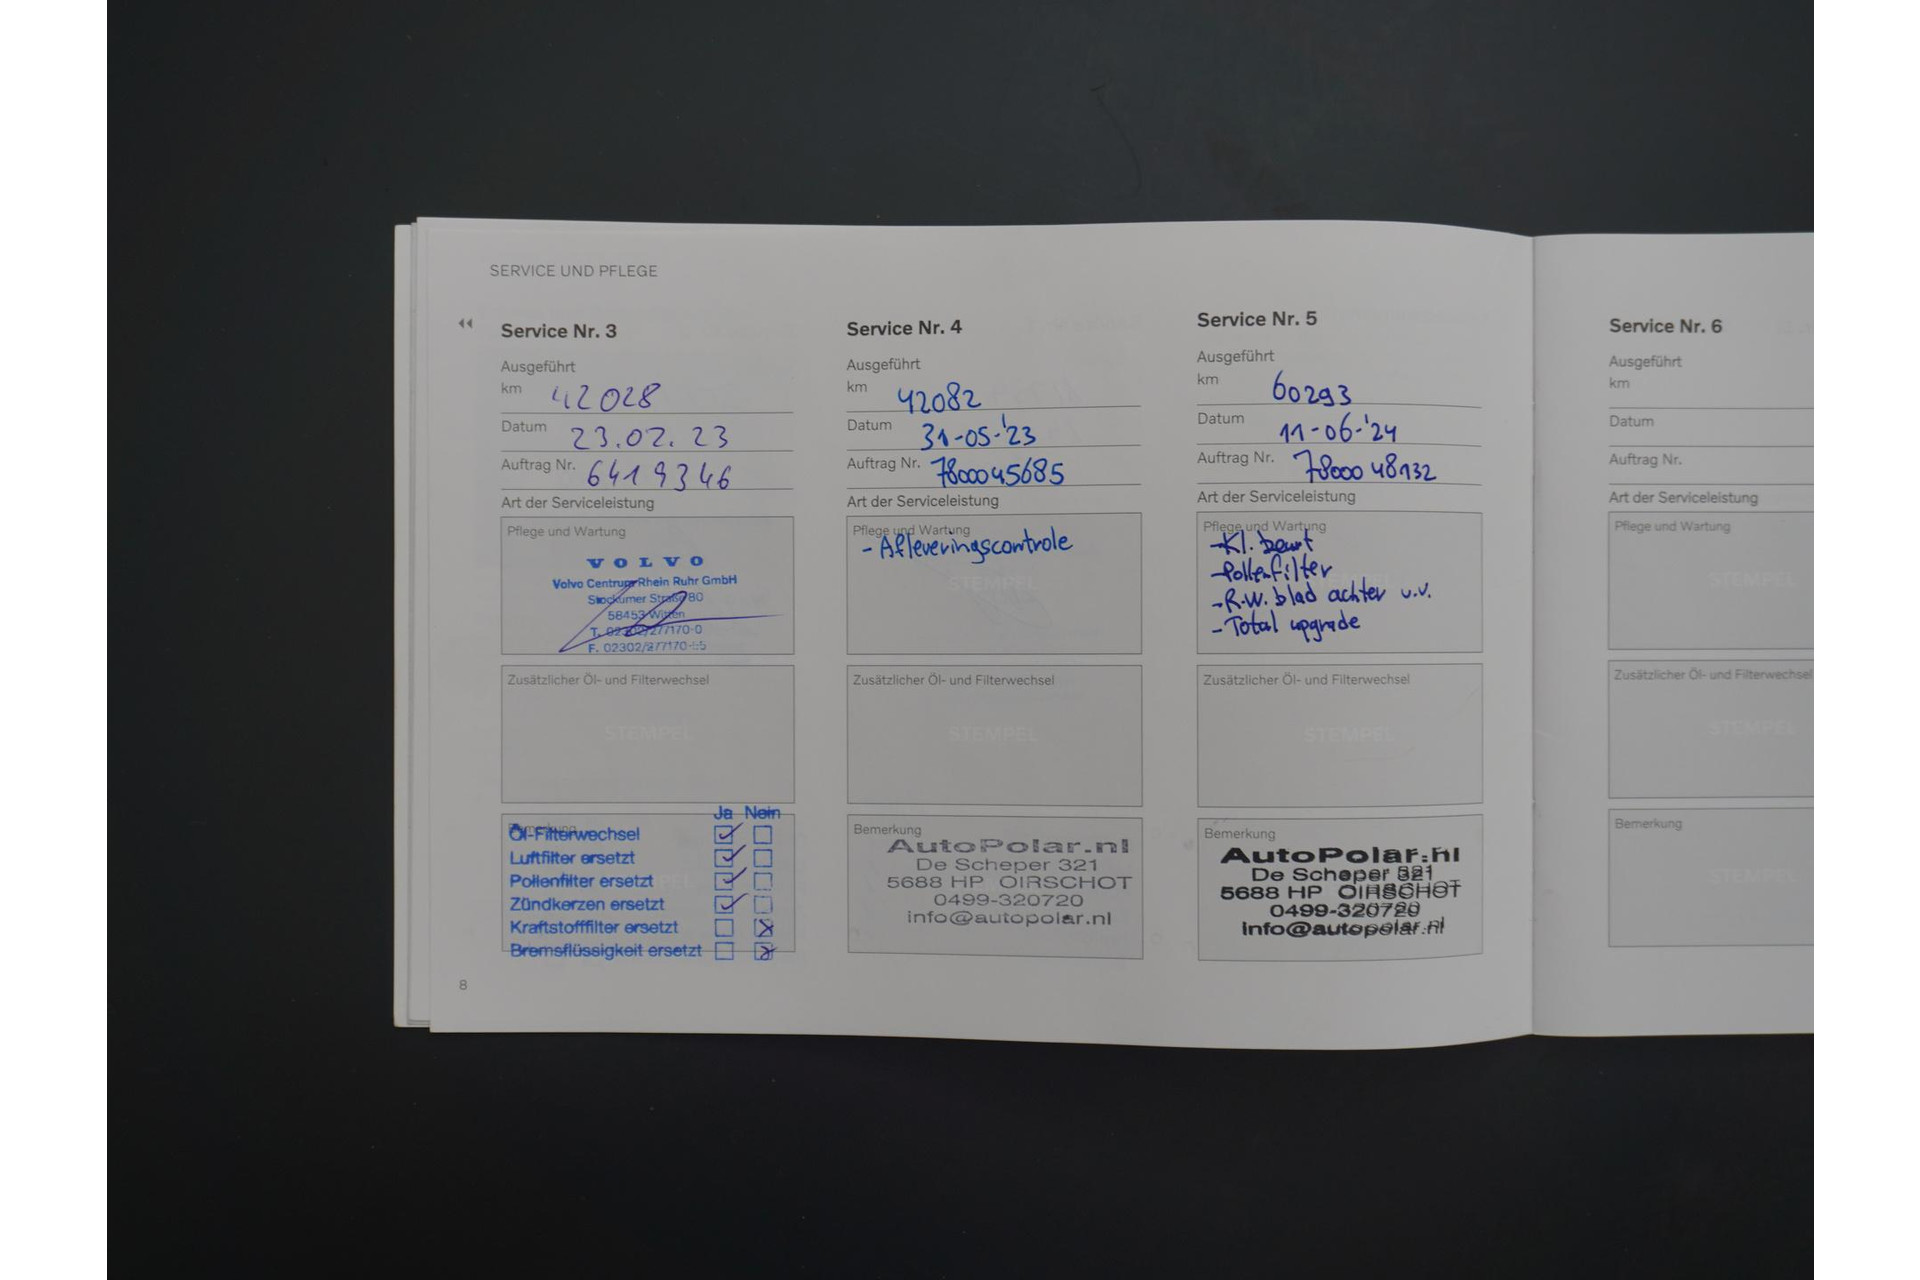 SERVICE UND PFLEGE
Service Nr. 3
Ausgeführt
km 42028
Datum 23.02.23
Auftrag Nr. 6419346
Art der Serviceleistung
Pflege und Wartung
VOLVO
Volvo Centrum Rhein Ruhr GmbH
Stockumer Straße 80
58453 Witten
T. 02302/277170-0
F. 02302/277170-55
Zusätzlicher Öl- und Filterwechsel
STEMPEL
Ja Nein
Bemerkung
Öl-Filterwechsel
Luftfilter ersetzt
Pollenfilter ersetzt
Zündkerzen ersetzt
Kraftstofffilter ersetzt
Bremsflüssigkeit ersetzt
8
Service Nr. 4
Ausgeführt
km 42082
Datum 31-05-'23
Auftrag Nr. 7800045685
Art der Serviceleistung
Pflege und Wartung
- Afleveringscontrole
STEMPEL
Zusätzlicher Öl- und Filterwechsel
STEMPEL
Bemerkung
AutoPolar.nl
De Scheper 321
5688 HP OIRSCHOT
0499-320720
info@autopolar.nl
Service Nr. 5
Ausgeführt
km 60293
Datum 11-06-'24
Auftrag Nr. 7800048132
Art der Serviceleistung
Pflege und Wartung
- Kl. beurt
- Pollenfilter
- R.W. blad achter v.v.
- Total upgrade
Zusätzlicher Öl- und Filterwechsel
STEMPEL
Bemerkung
AutoPolar.nl
De Scheper 321
5688 HP OIRSCHOT
0499-320720
info@autopolar.nl
Service Nr. 6
Ausgeführt
km
Datum
Auftrag Nr.
Art der Serviceleistung
Pflege und Wartung
STEMPEL
Zusätzlicher Öl- und Filterwechsel
STEMPEL
Bemerkung
STEMPEL